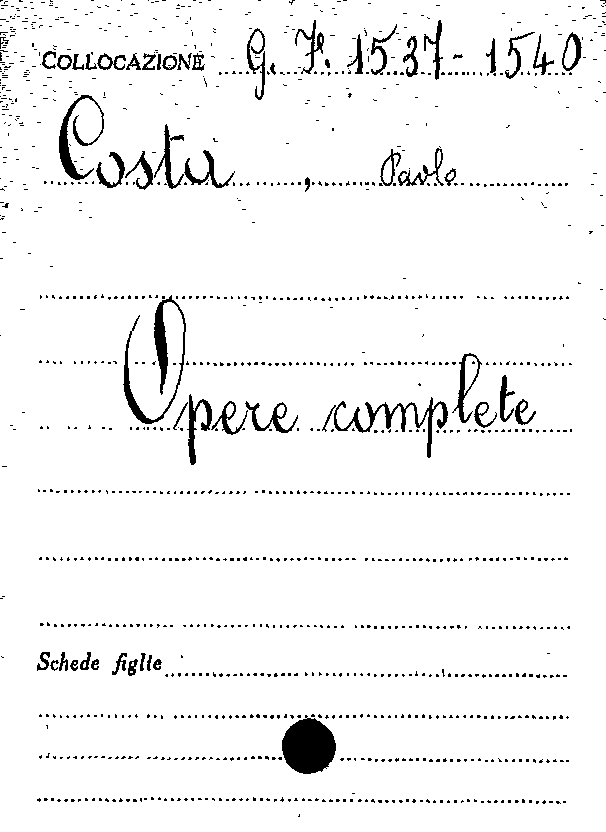 COLLOCAZIONE G. F. 1537-1540
Costa, Paolo
Opere complete
Schede figlie